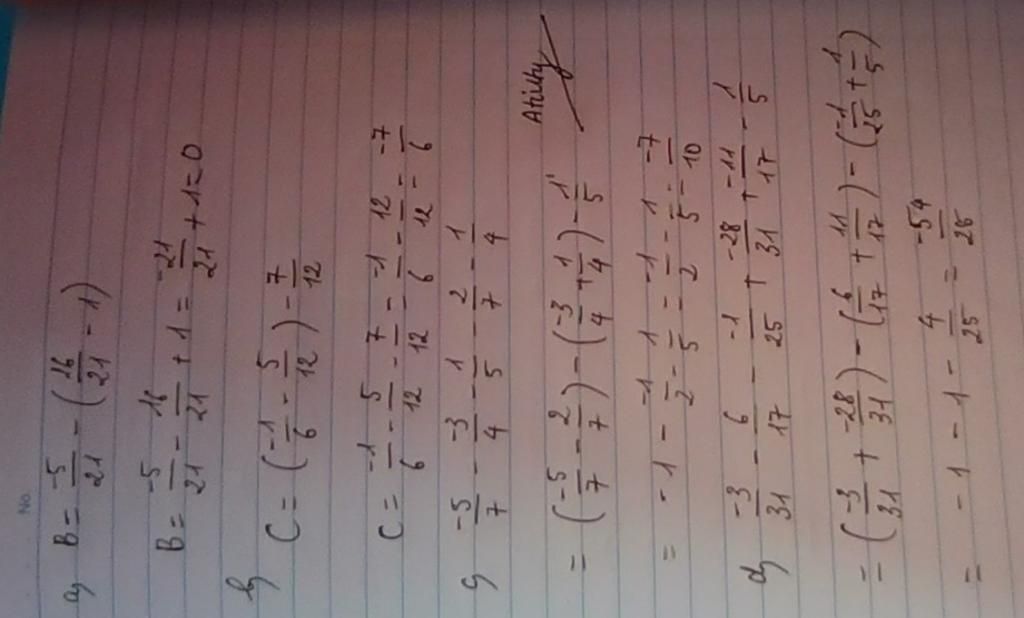 No.
a) B = -5/21 - (16/21 - 1)
B = -5/21 - 16/21 + 1 = -21/21 + 1 = 0
b) C = (-1/6 - 5/12) - 7/12
C = -1/6 - 5/12 - 7/12 = -1/6 - 12/12 = -7/6
c) -5/7 - -3/4 - 1/5 - 2/7 - 1/4
= (-5/7 - 2/7) - (-3/4 + 1/4) - 1/5
= -1 - -1/2 - 1/5 = -1/2 - 1/5 = -7/10
d) -3/31 - 6/17 - -1/25 + -28/31 + -11/17 - 1/5
= (-3/31 + -28/31) - (6/17 + 11/17) - (-1/25 + 1/5)
= -1 - 1 - 4/25 = -54/25